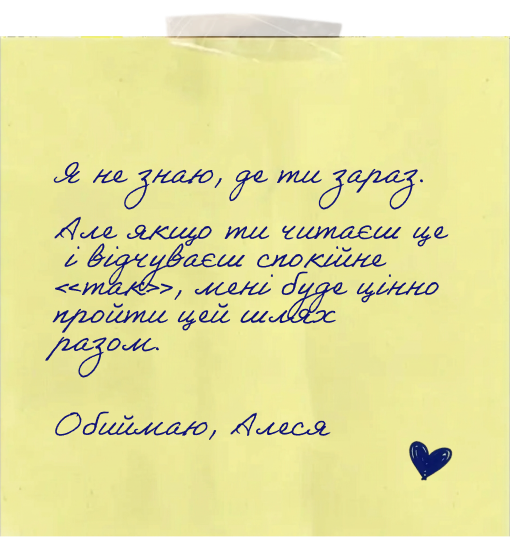 Я не знаю, де ти зараз.
Але якщо ти читаєш це
і відчуваєш спокійне
«так», мені буде цінно
пройти цей шлях
разом.
Обиймаю, Алеся